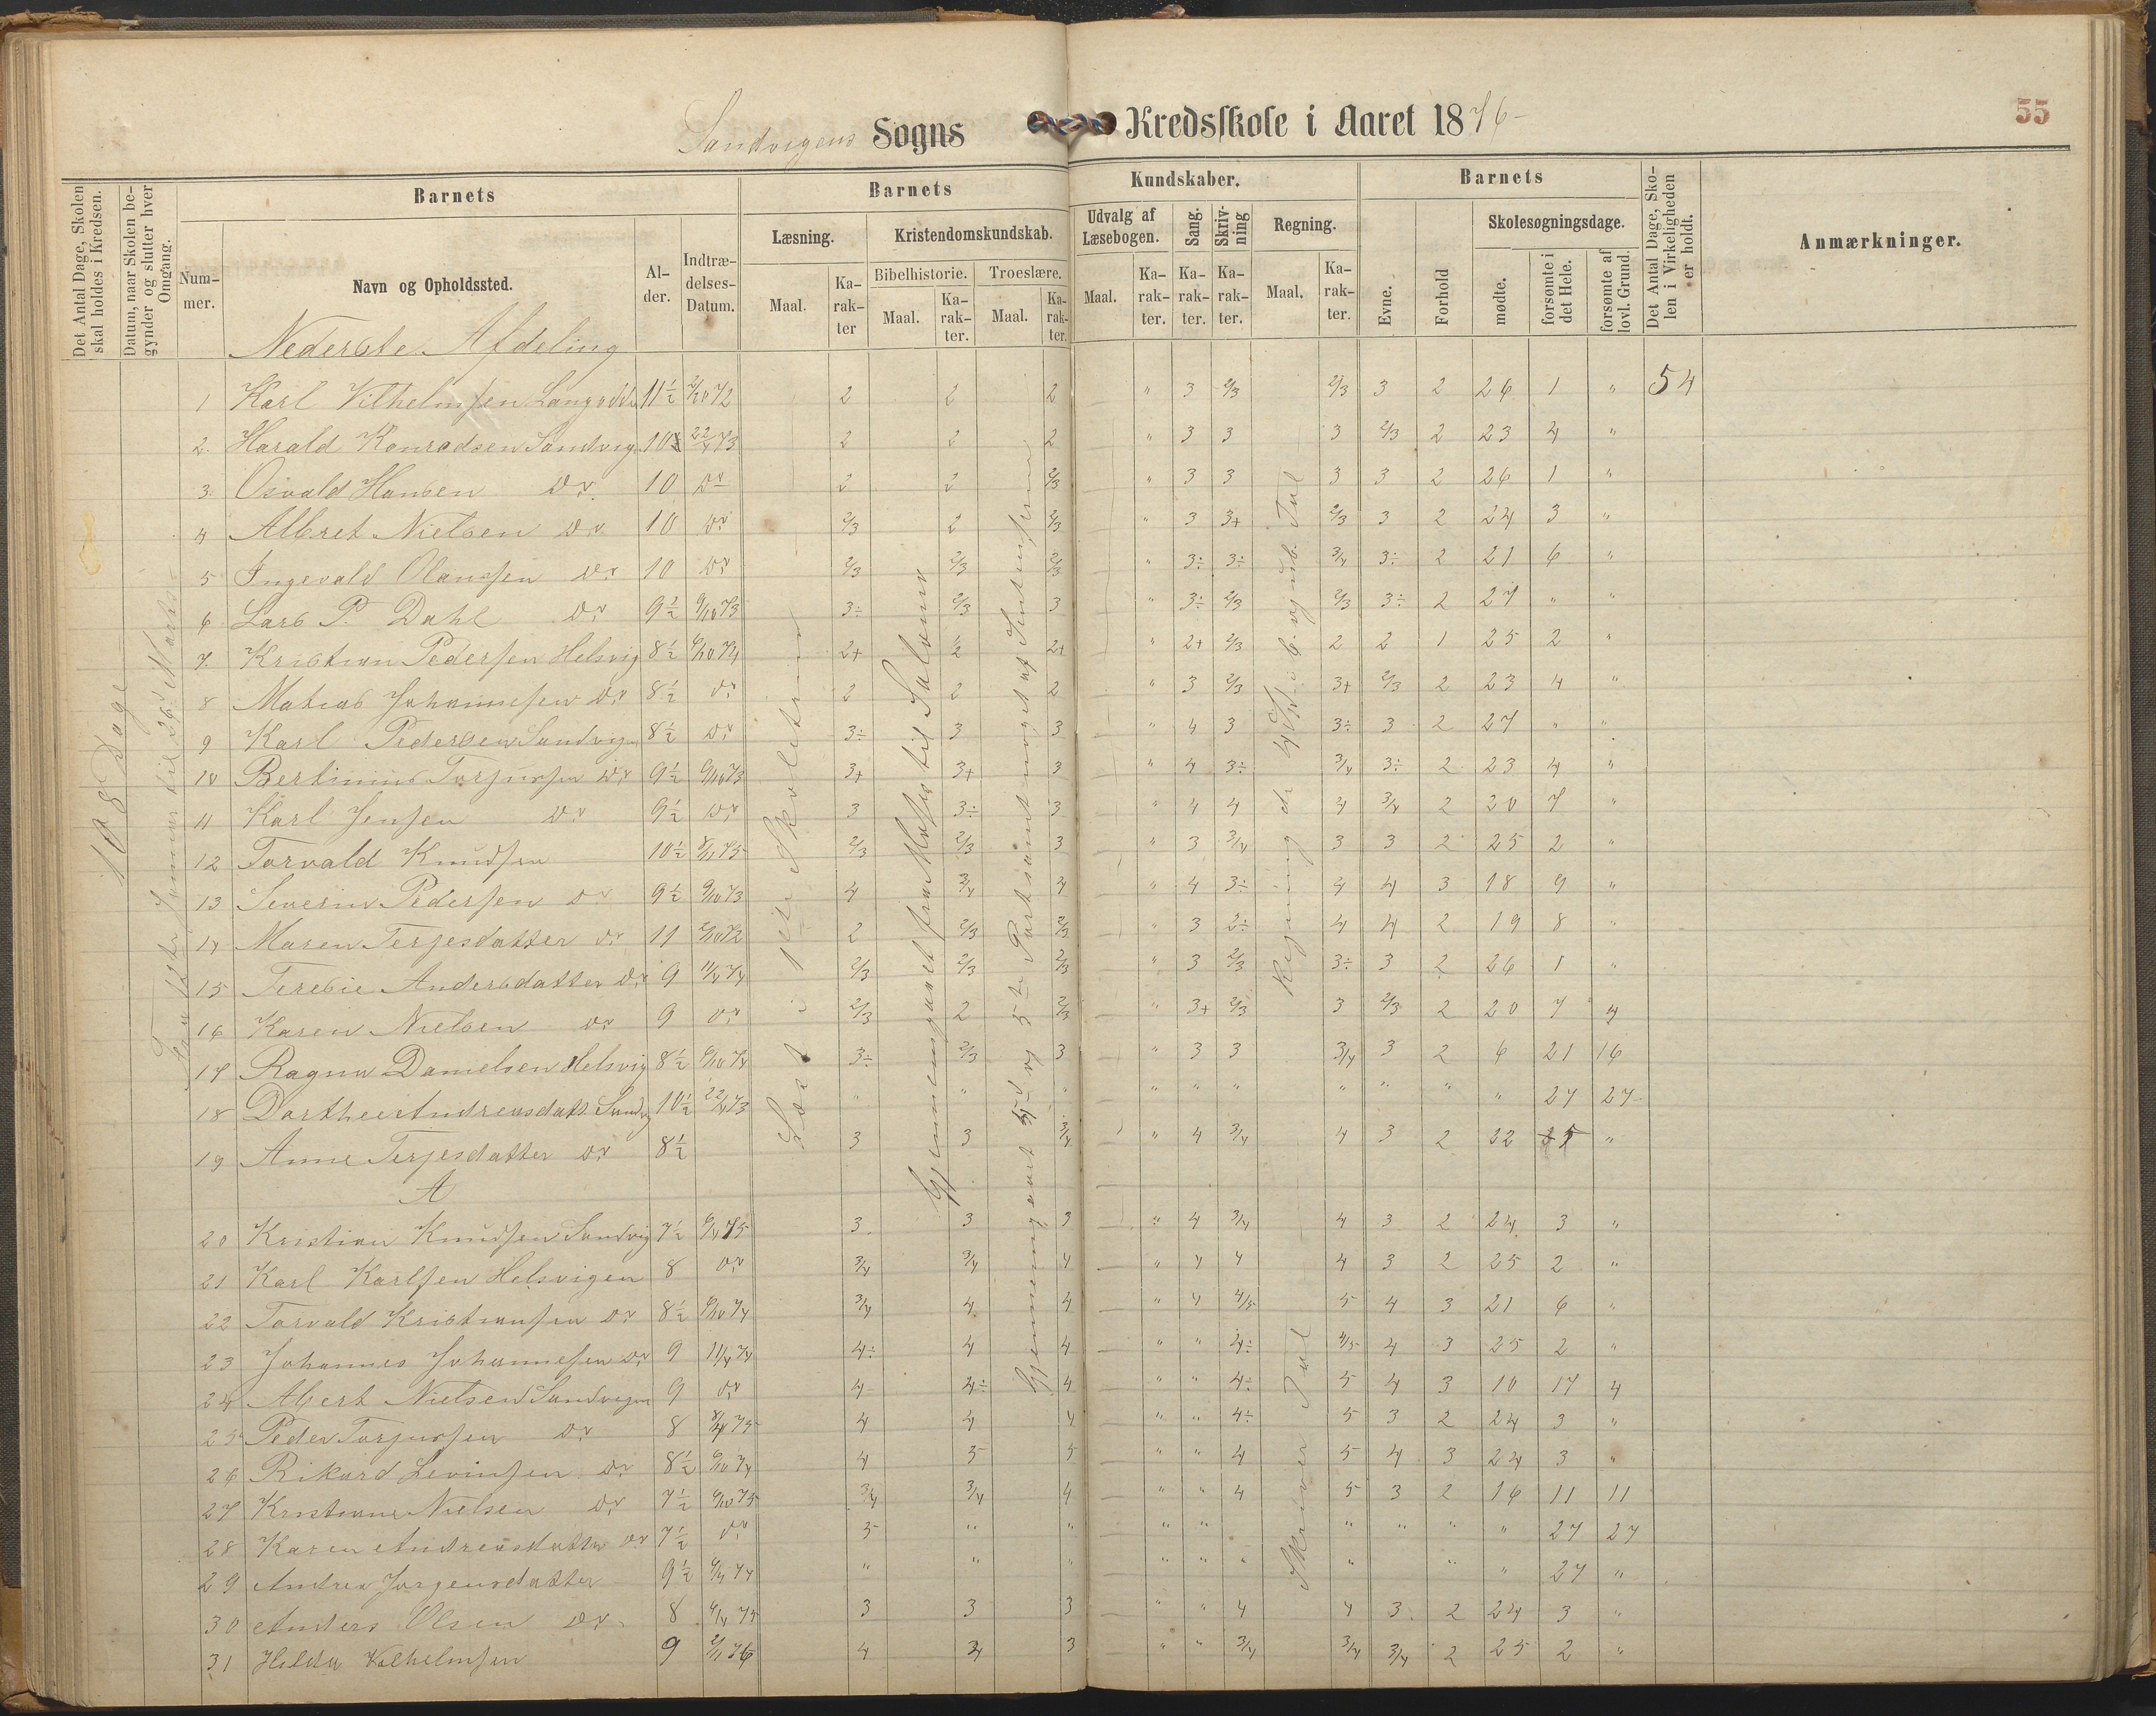 Sandvigens Sogns Kredsskole i Aaret 1876
55
Det Antal Dage, Skolen skal holdes i Kredsen.
Datum, naar Skolen begynder og slutter hver Omgang.
Barnets
Nummer.
Navn og Opholdssted.
Alder.
Indtrædelses-Datum.
Barnets Kundskaber.
Læsning.
Maal.
Karakter
Kristendomskundskab.
Bibelhistorie.
Maal.
Karakter.
Troeslære.
Maal.
Karakter.
Udvalg af Læsebogen.
Maal.
Karakter.
Sang.
Karakter.
Skrivning
Karakter.
Regning.
Maal.
Karakter.
Barnets
Evne.
Forhold
Skolesøgningsdage.
mødte.
forsømte i det Hele.
forsømte af lovl. Grund.
Det Antal Dage, Skolen i Virkeligheden er holdt.
Anmærkninger.
Nederste Afdeling
108 Dage
Læst i 1ste Skoletrin
Gjennemgaaet fra Moses til Salomo
Skriver Tal
1 Karl Vilhelmsen 11½ 2 2 2 " 3 2/3 2/3 3 2 26 1 " 54
2 Harald Konradsen Sandvigen 22/4 73 2 2 2 " 3 3 3 2/3 2 23 4 "
3 Osvald Hansen Do 10 Do 2 2 2/3 " 3 3 3 3 2 26 1 "
4 Albret Nielsen Do 10 Do 2/3 2 2/3 " 3 3+ 2/3 3 2 24 3 "
5 Ingevald Olaussen Do 10 Do 2/3 2/3 2/3 " 3÷ 3÷ 3/4 3÷ 2 21 6 "
6 Lars P. Dahl Do 9½ 9/10 73 3÷ 2/3 3 " 3÷ 2/3 2/3 3÷ 2 27 " "
7 Kristian Pedersen Helsvig 8½ 2+ ½ 2+ " 2+ 2/3 2 2 1 25 2 "
8 Matias Johannesen Do 8½ Do 2 2 2 " 3 2/3 3+ 2/3 2 23 4 "
9 Karl Pedersen Sandvigen 8½ Do 3÷ 3 3 " 4 3 3÷ 3 2 27 " "
10 Bertinius Torjussen Do 9½ 3+ 3+ 3 " 4 3÷ 3/4 3÷ 2 23 4 "
11 Karl Jensen Do 9½ Do 3 3÷ 3 " 4 4 4 3/4 2 20 7 "
12 Torvald Knudsen 10½ 2/3 2/3 3 " 3 3/4 3 3 2 25 2 "
13 Severin Pedersen Do 9½ 9/10 73 4 3/4 4 " 4 3÷ 4 4 3 18 9 "
14 Maren Terjesdatter Do 11 2 2/3 2/3 " 3 2÷ 4 4 2 19 8 "
15 Teresie Andersdatter Do 9 11/4 74 2/3 2/3 2/3 " 3 2/3 3÷ 3 2 26 1 "
16 Karen Nielsen Do 9 Do 2/3 2 2/3 " 3+ 2/3 3 2/3 2 20 7 4
17 Ragna Danielsen Helsvig 8½ 3÷ 2/3 3 " 3 3 3/4 3 2 6 21 16
18 Dorthea Andreasdatt Sandvig 10½ 22/4 73 " " " " " " " " " " 27 27
19 Anne Terjesdatter Do 8½ 3 3 3/4 " 4 3/4 4 3 2 22 5 "
A
20 Kristian Knudsen Sandvig 7½ 3 3 3 " 4 3/4 4 3 2 24 3 "
21 Karl Karlsen Helsvigen 8 Do 3/4 3/4 4 " 4 4 4 3 2 25 2 "
22 Torvald Kristiansen Do 8½ 3/4 4 4 " 4 4/5 5 4 3 21 6 "
23 Johannes Johannesen Do 9 11/4 74 4÷ 4 4 " " 4÷ 4/5 4 3 25 2 "
24 Albert Nielsen Sandvigen 9 Do 4 4÷ 4 " " 4÷ 5 4 3 10 17 4
25 Peder Torjussen Do 8 4 4 4 " " 4÷ 5 3 2 24 3 "
26 Rikard Levinsen Do 8½ 4 5 5 " " 4 5 4 3 24 3 "
27 Kristiane Nielsen Do 7½ 3/4 3/4 4 " " 4 5 3 2 16 11 11
28 Karen Andreasdatter Do 7½ Do 5 " " " " " " " " 27 27
29 Andrea Jørgensdatter 9½ " " " " " " " " " 27 "
30 Anders Olsen Do 8 3 3 3 " " 4 4 3 2 24 3 "
31 Hilda Vilhelmsen 9 4 3 " " 3/4 3/4 3/4 2 25 2 "